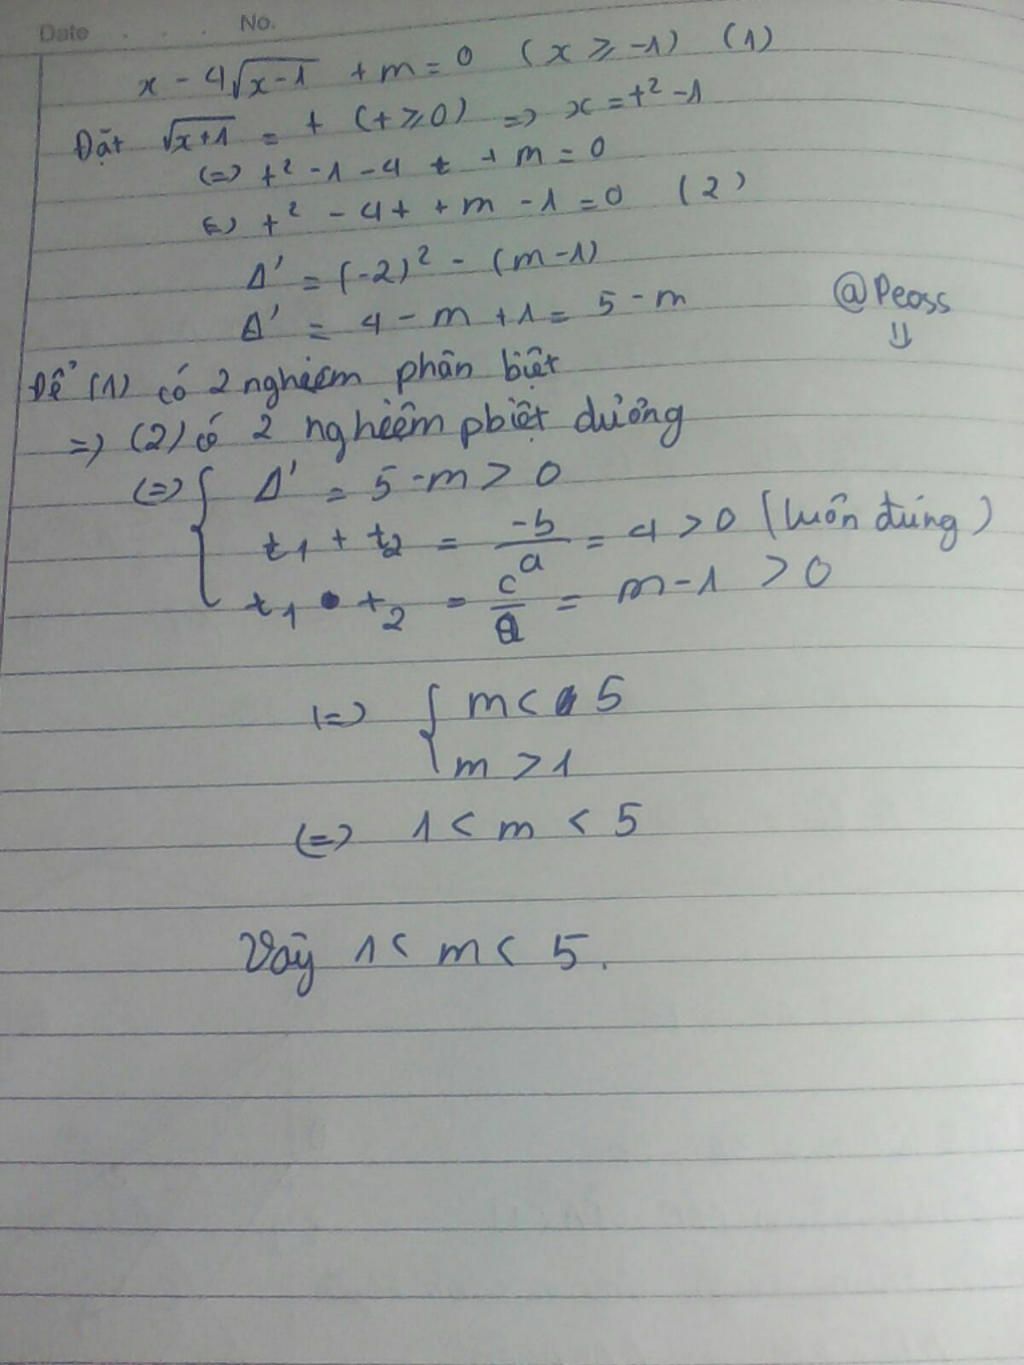 Date . . . No.
x - 4√(x-1) + m = 0 (x ≥ -1) (1)
Đặt √(x+1) = t (t ≥ 0) => x = t² - 1
(=) t² - 1 - 4 t + m = 0
(=) t² - 4t + m - 1 = 0 (2)
Δ' = (-2)² - (m-1)
Δ' = 4 - m + 1 = 5 - m
@Peoss
⇓
Để (1) có 2 nghiệm phân biệt
=> (2) có 2 nghiệm pbiệt dương
(=> { Δ' = 5 - m > 0
t₁ + t₂ = -b/a = 4 > 0 (luôn đúng)
t₁ • t₂ = c/a = m - 1 > 0
(=> { m < 5
m > 1
(=> 1 < m < 5
Vậy 1 < m < 5.